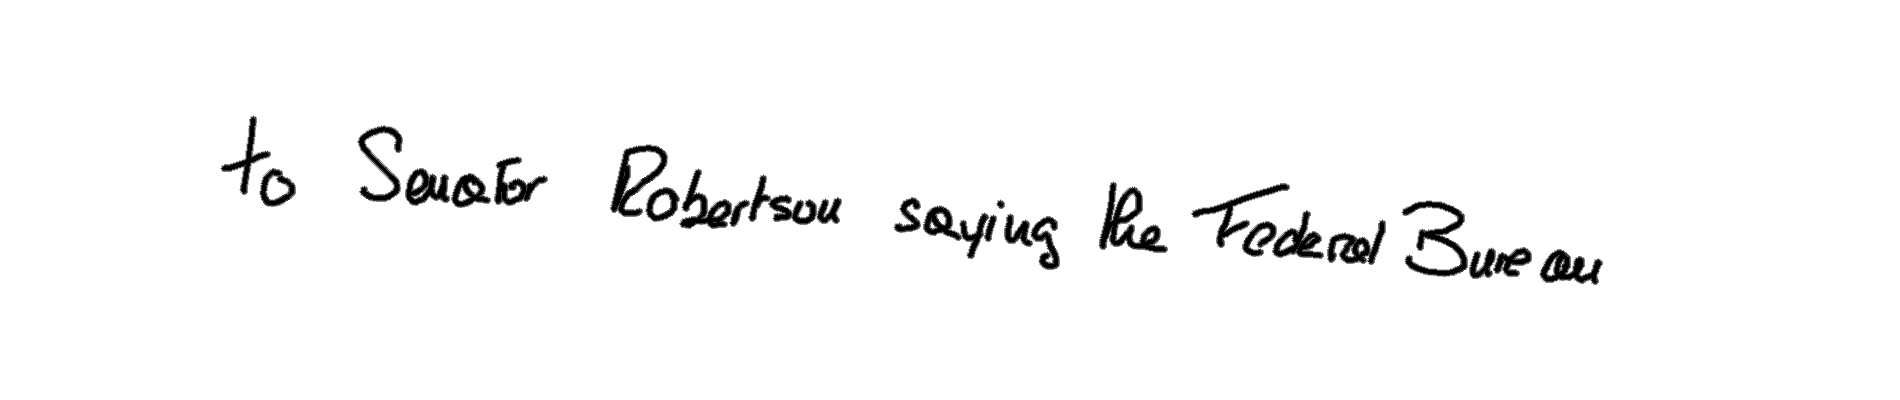 to Senator Robertson saying the Federal Bureau